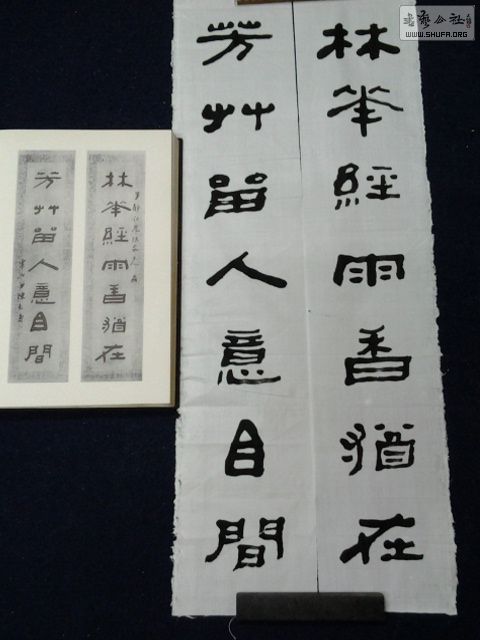 書藝公社
WWW.SHUFA.ORG
林華經雨香猶在
芳艸畱人意自間
林華經雨香猶在
芳艸畱人意自間